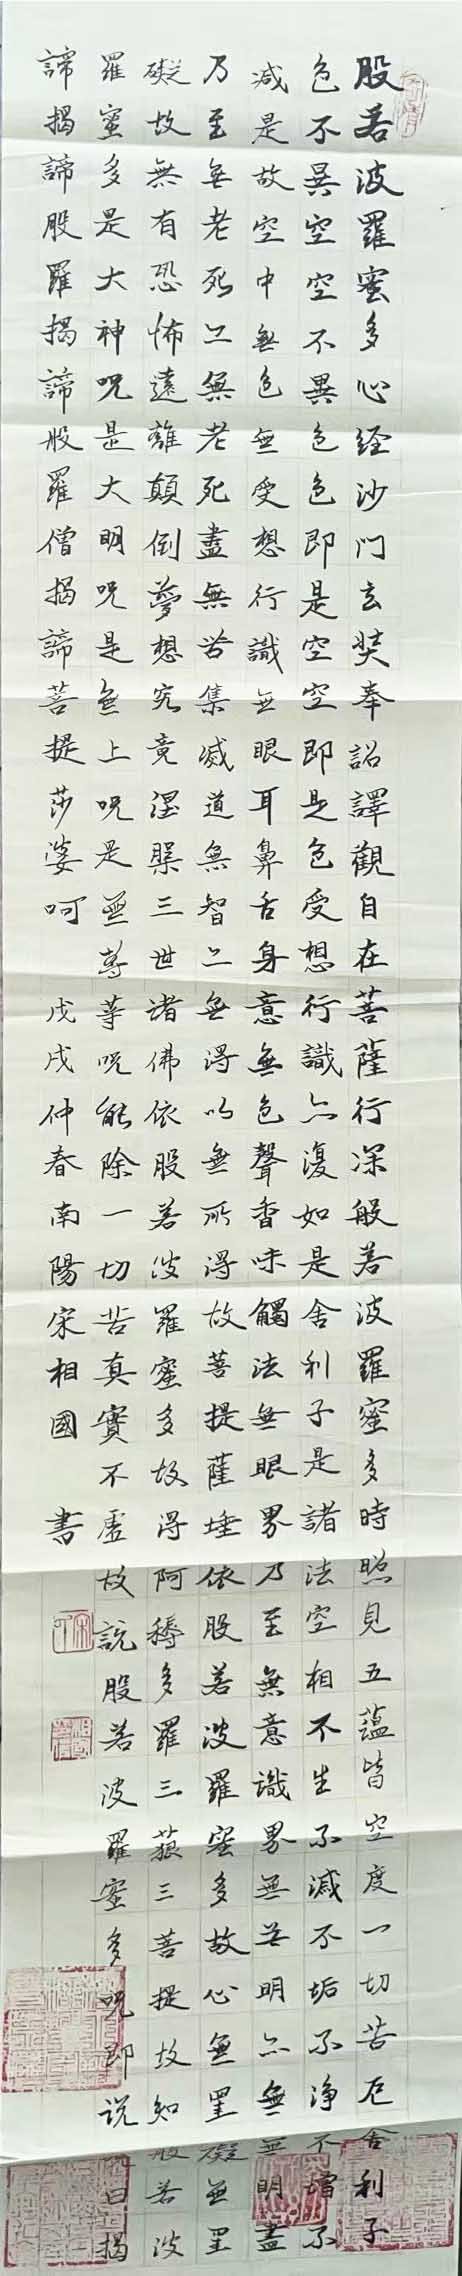 般若波羅蜜多心经沙门玄奘奉詔譯觀自在菩薩行深般若波羅蜜多時照見五蘊皆空度一切苦厄舍利子
色不異空空不異色色即是空空即是色受想行識亦復如是舍利子是諸法空相不生不滅不垢不净不增不
减是故空中無色無受想行識無眼耳鼻舌身意無色聲香味觸法無眼界乃至無意識界無無明亦無無明盡
乃至無老死亦無老死盡無苦集滅道無智亦無得以無所得故菩提薩埵依般若波羅蜜多故心無罣礙無罣
礙故無有恐怖遠離顛倒夢想究竟涅槃三世諸佛依般若波羅蜜多故得阿耨多羅三藐三菩提故知般若波
羅蜜多是大神咒是大明咒是無上咒是無等等咒能除一切苦真實不虛故説般若波羅蜜多咒即说咒曰揭
諦揭諦般羅揭諦般羅僧揭諦菩提莎婆呵 戊戌仲春南陽宋相國 書